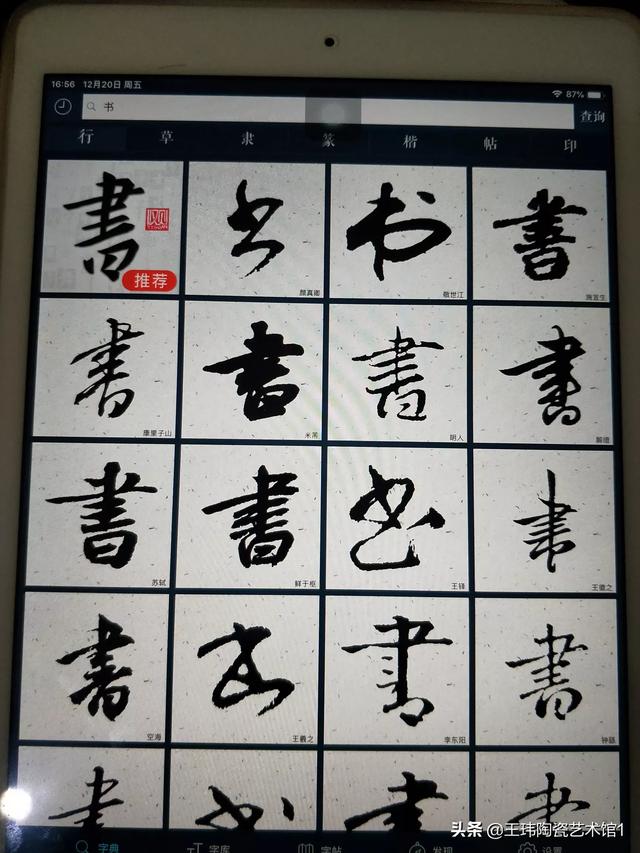 16:56 12月20日 周五 87%
书 查询
行 草 隶 篆 楷 帖 印
書 书 书 書
推荐
颜真卿 敬世江 施宜生
書 書 書 書
康里子山 米芾 明人
書 書 书 書
苏轼 鲜于枢 王铎 王羲之
書 书 書 書
空海 王羲之 李东阳 钟繇
書 书 書 書
字典 字库 字帖 发现 设置
头条 @王玮陶瓷艺术馆1